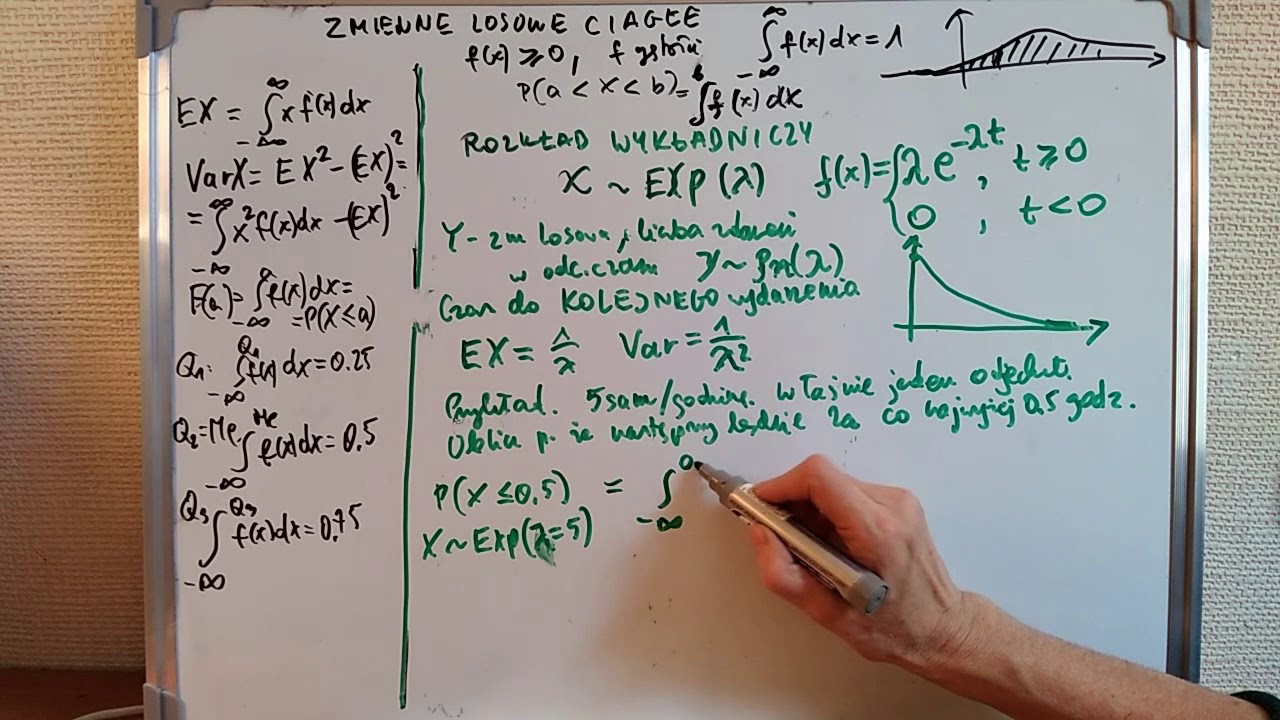 ZMIENNE LOSOWE CIAGŁE
f(x) ≥ 0, f gęstości ∫_{-∞}^{∞} f(x) dx = 1
P(a < X < b) = ∫ f(x) dx
EX = ∫_{-∞}^{∞} x f(x) dx
VarX = EX² - (EX)² =
= ∫_{-∞}^{∞} x² f(x) dx - (EX)²
F(a) = ∫_{-∞}^{a} f(x) dx =
= P(X ≤ a)
Q₁: ∫_{-∞}^{Q₁} f(x) dx = 0.25
Q₂ = Me ∫_{-∞}^{Me} f(x) dx = 0.5
Q₃ ∫_{-∞}^{Q₃} f(x) dx = 0.75
ROZKŁAD WYKŁADNICZY
X ~ EXP(λ) f(x) = { λe^{-λt}, t ≥ 0
0, t < 0
Y - zm losowa, liczba zdarzeń
w odc. czasu Y ~ (λ)
Czas do KOLEJNEGO wydarzenia
EX = 1/λ Var = 1/λ²
Przykład. 5 sam/godzinę. właśnie jeden odjechał.
Oblicz p. że następny będzie za co najwyżej 0,5 godz.
P(X ≤ 0,5) = ∫_{-∞}^{0}
X ~ EXP(λ = 5)